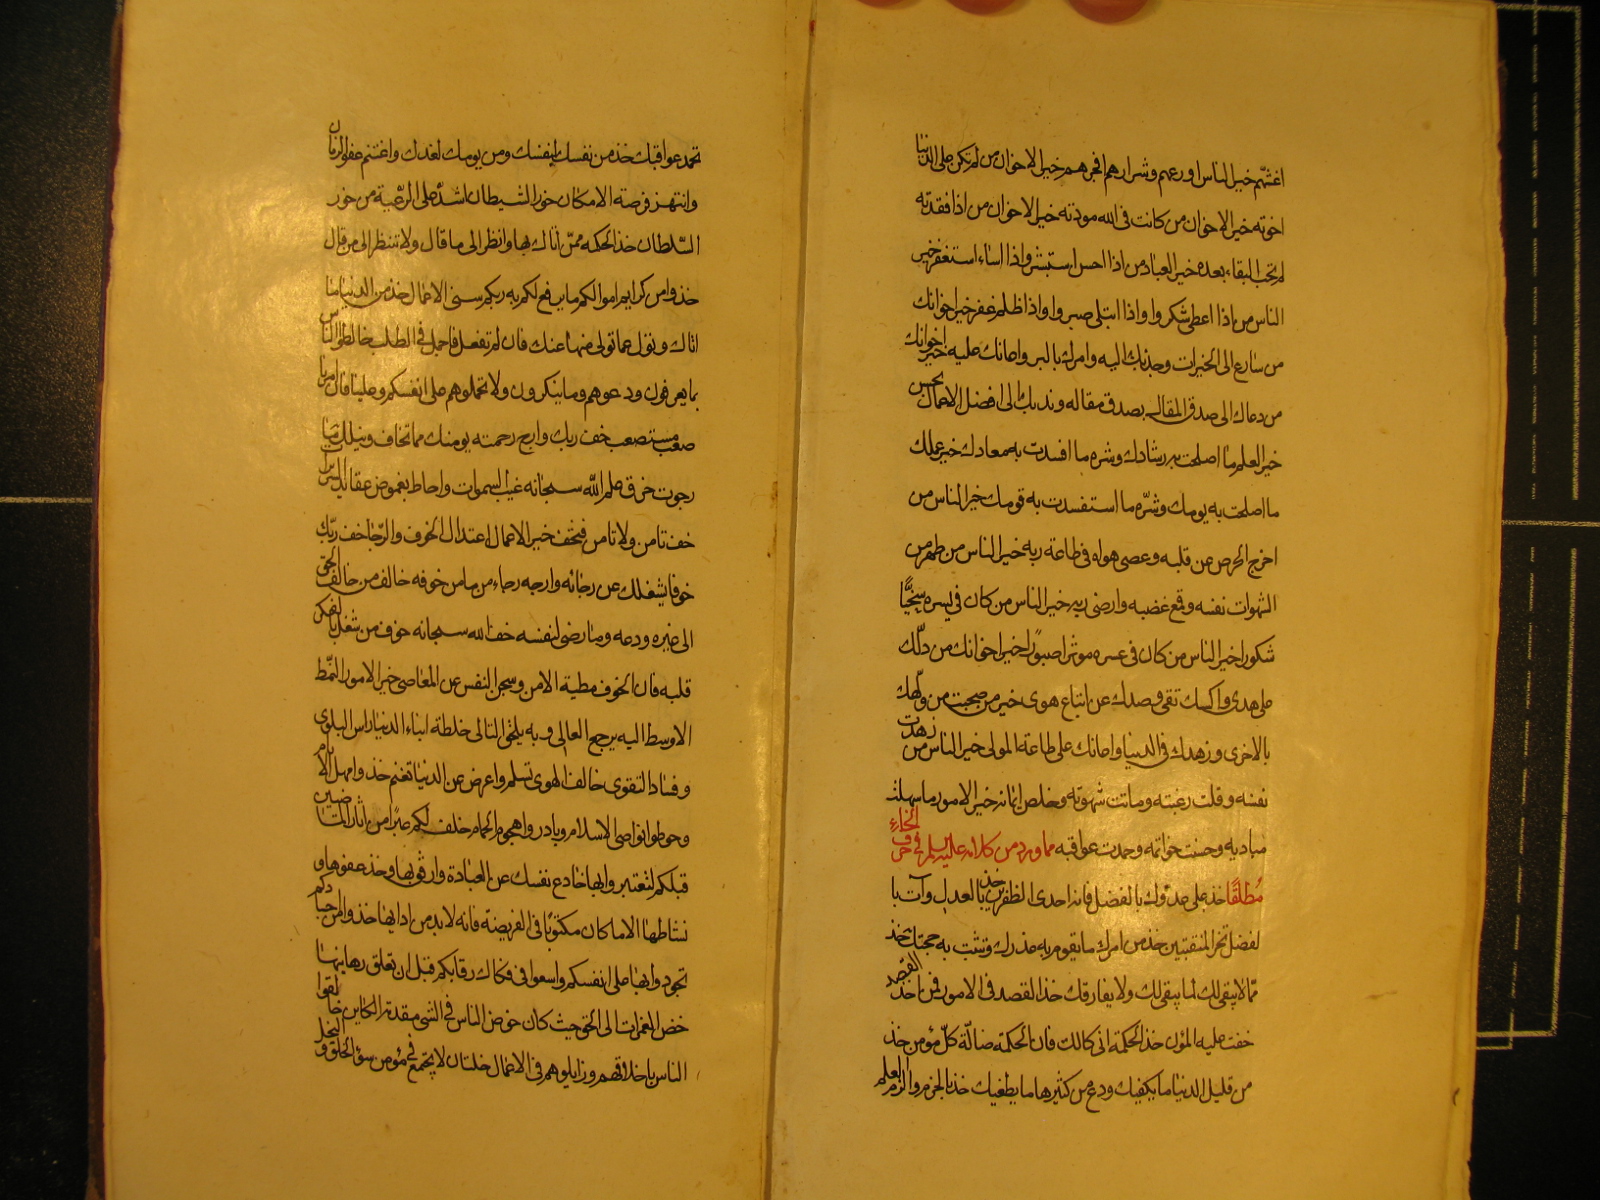 اغشّهم خير الناس اورعهم وشرارهم افجرهم خير الاخوان من لم تكن على الدنيا
اخوته خير الاخوان من كانت فى الله مودته خير الاخوان من اذا فقدته
لم تحب البقاء بعده خير العباد من اذا احسن استبشر واذا اساء استغفر خير
الناس من اذا اعطى شكر واذا ابتلى صبر واذا ظلم غفر خير اخوانك
من سارع الى الخيرات وجذبك اليه وامرك بالبر واعانك عليه خير اخوانك
من دعاك الى صدق المقال بصدق مقاله وندبك الى افضل الاعمال بحسن
خير العلم ما اصلحت به رشادك وشره ما افسدت به معادك خير عملك
ما اصلحت به يومك وشرّه ما استفسدت به قومك خير الناس من
اخرج الحرص من قلبه وعصى هواه فى طاعة ربه خير الناس من طهر من
الشهوات نفسه وقمع غضبه وارضى ربه خير الناس من كان فى يسره سخيًّا
شكورا خير الناس من كان فى عسره موثرا صبورًا خير اخوانك من دلّك
على هدى واكسبك تقى وصدك عن اتباع هوى خير من صحبت من ولّهك
بالاخرى وزهدك فى الدنيا واعانك على طاعة المولى خير الناس من زهدت
نفسه وقلت رغبته وماتت شهوته وخلص ايمانه خير الامور ما سهلت
مباديه وحسنت خواتمه وحمدت عواقبه مما ورد من كلامه عليه السلم فى حرف الخاء
مُطلقًا خذ على عدوك بالفضل فانه احدى الظفرين خذ بالعدل وآت با
لفضل تحز المنقبتين خذ من امرك ما يقوم به عذرك وتثبت به حجتك خذ
ممّا لا يبقى لك لما يبقى لك ولا يفارقك خذ القصد فى الامور فمن اخذ القصد
خفت عليه المؤن خذ الحكمة انى كانت فان الحكمة ضالّة كلّ مؤمن خذ
من قليل الدنيا ما يكفيك ودع من كثيرها ما يطغيك خذ بالحزم والزم العلم
تحمد عواقبك خذ من نفسك لنفسك ومن يومك لغدك واغتنم عفو الزمان
وانتهز فرصة الامكان خور الشيطان اشدّ على الرّعية من خور
السّلطان خذ الحكمه ممّن اتاك بها وانظر الى ما قال ولا تنظر الى من قال
خذوا من كرايم اموالكم ما يرفع لكم به ربكم سنى الاعمال خذ من الدنيا ما
اتاك وتول عما تولى منها عنك فان لم تفعل فاجمل فى الطلب خالطوا الناس
بما يعرفون ودعوهم وما ينكرون ولا تحملوهم على انفسكم وعلينا فان امرنا
صعب مستصعب خف ربك وارج رحمته يومنك مما تخاف وينيلك ما
رجوت خرق علم الله سبحانه غيب السموات واحاط بغموض عقائد السرا
خف تامن ولا تامن فتخف خير الاعمال اعتدال الخوف والرّجا خف ربّك
خوفا يشغلك عن رجائه وارجه رجاء من لا يامن خوفه خالف من خالف الحق
الى غيره ودعه وما رضى لنفسه خف الله سبحانه خوف من شغل بالفكر
قلبه فان الخوف مطية الامن وسجن النفس عن المعاصى خير الامور النّمط
الاوسط اليه يرجع العالى وبه يلحق التالى خلطة ابناء الدنيا راس البلوى
وفساد التقوى خالف الهوى تسلم واعرض عن الدنيا تغنم خذوا مهل الايام
وحوطوا نواصى الاسلام وبادروا هجوم الحمام خلف لكم عبرًا من اثار الماضين
قبلكم لتعتبروا بها خادع نفسك عن العبادة وارفق بها وخذ عفوها و
نشاطها الا ما كان مكتوبًا فى الفريضة فانه لابد من ادايها خذوا من اجسادكم
تجودوا بها على انفسكم واسعوا فى فكاك رقابكم قبل ان تعلق رهاينها
خض الغمرات الى الحق حيث كان خوض الناس فى الشى مقدمة الكاين خالقوا
الناس باخلاقهم وزايلوهم فى الاعمال خلتان لا يجتمع فى مؤمن سؤ الخلق و البخل